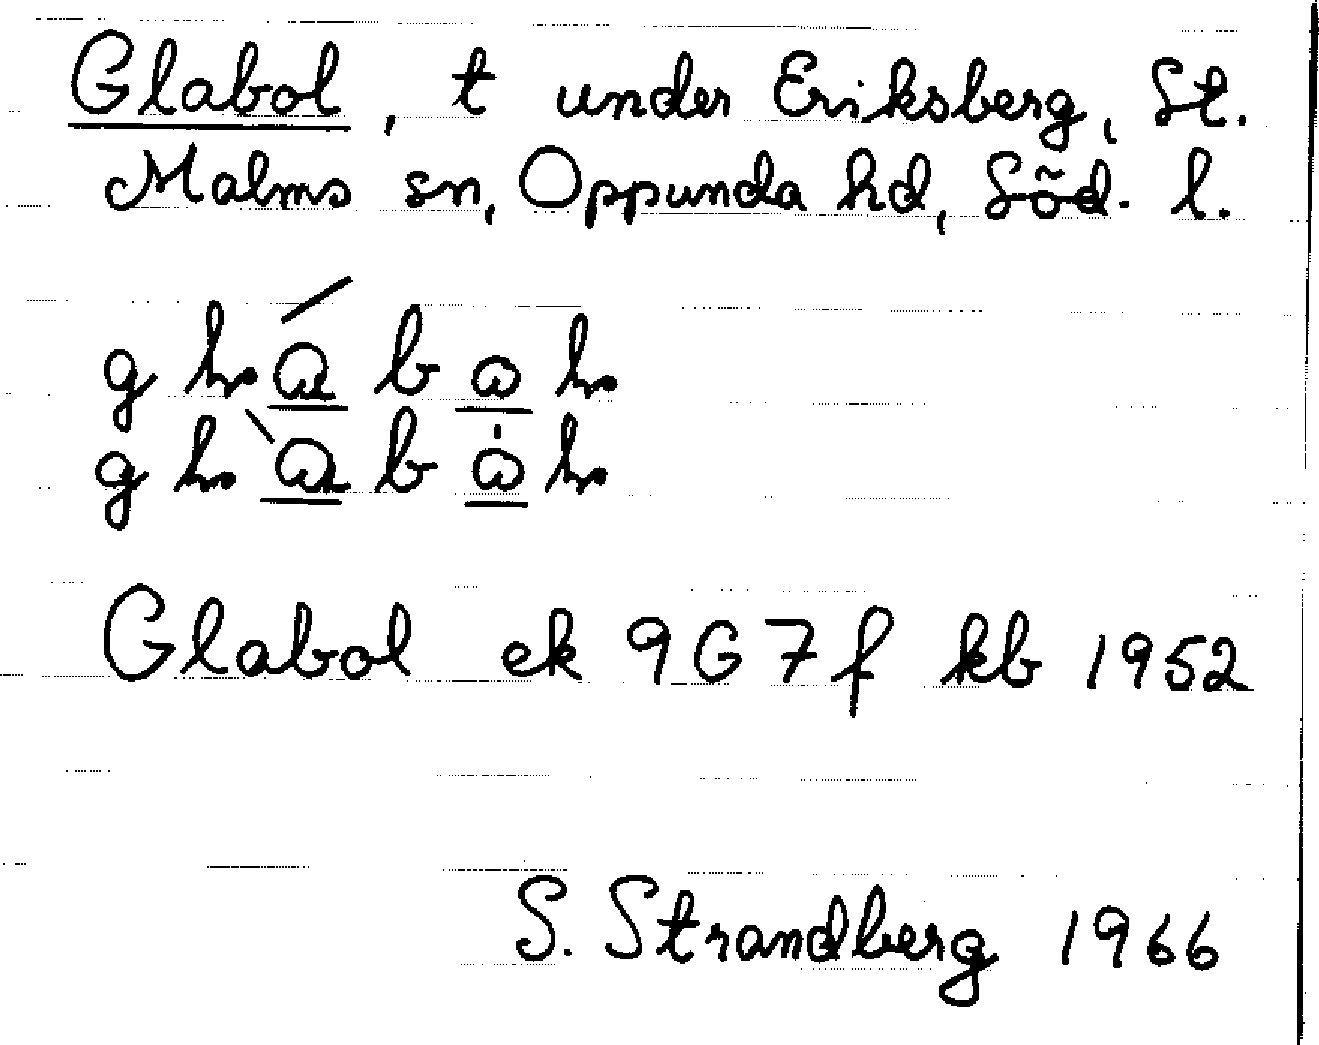 Glabol, t under Eriksberg, St.
Malms sn, Oppunda hd, Söd. l.
Glabol ek 9G7f kb 1952
S. Strandberg 1966